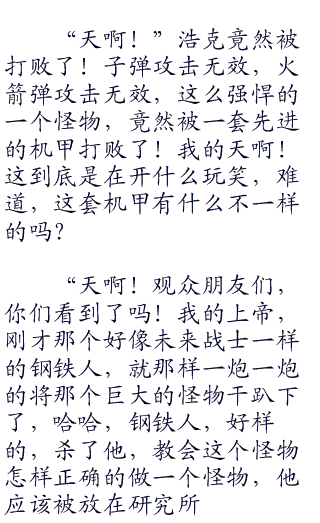 “天啊！”浩克竟然被
打败了！子弹攻击无效，火
箭弹攻击无效，这么强悍的
一个怪物，竟然被一套先进
的机甲打败了！我的天啊！
这到底是在开什么玩笑，难
道，这套机甲有什么不一样
的吗？
“天啊！观众朋友们，
你们看到了吗！我的上帝，
刚才那个好像未来战士一样
的钢铁人，就那样一炮一炮
的将那个巨大的怪物干趴下
了，哈哈，钢铁人，好样
的，杀了他，教会这个怪物
怎样正确的做一个怪物，他
应该被放在研究所